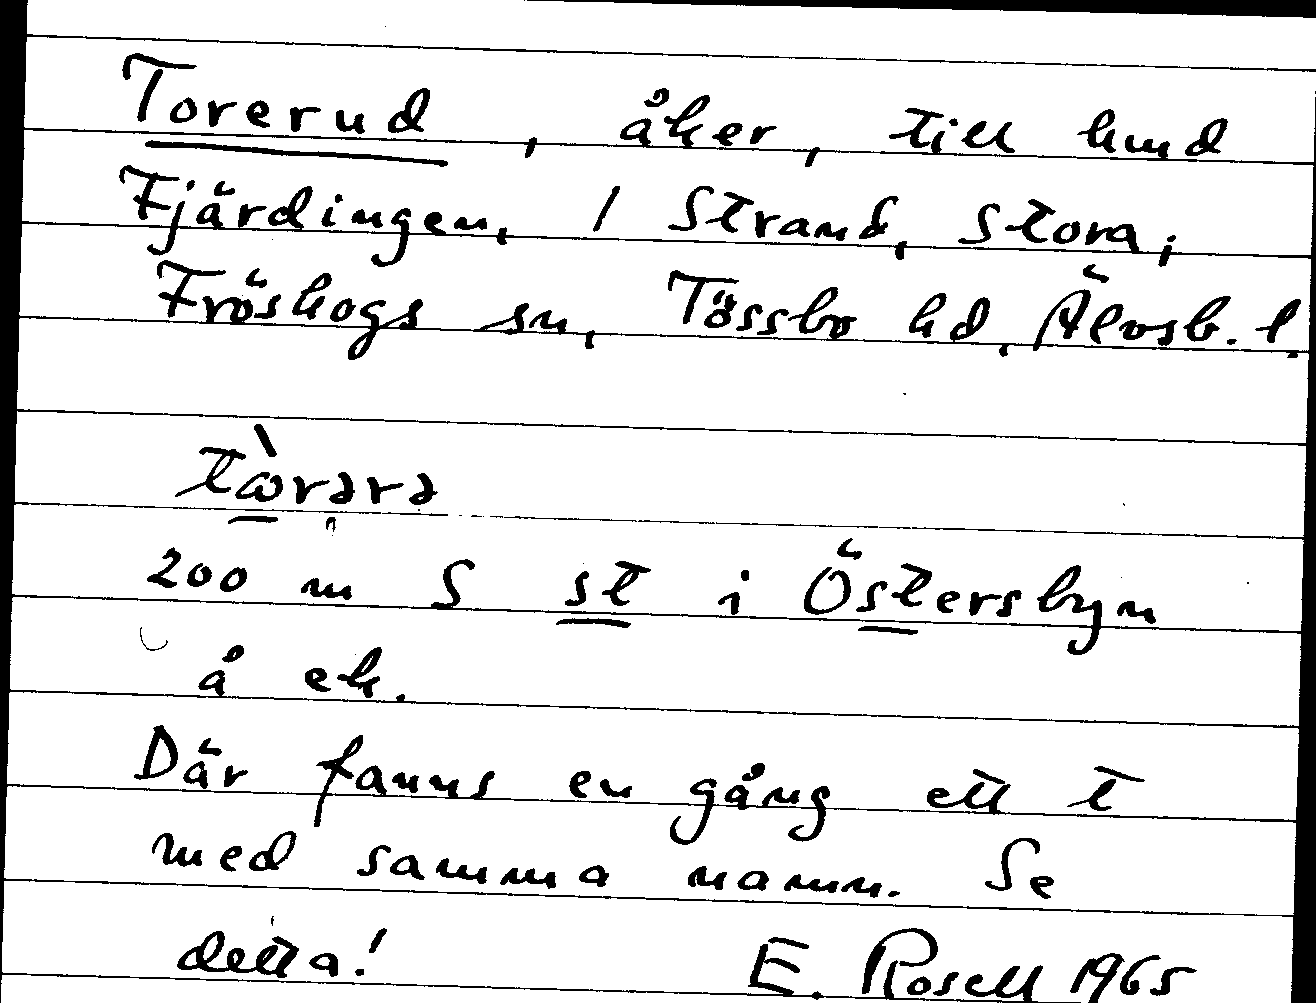 Torerud, åker, till hmd
Fjärdingen, 1 Strand, Stora,
Fröskogs sn, Tössbo hd, Älvsb. l.
tὼrərə
200 m S st i Östersbyn
å ek.
Där fanns en gång ett t
med samma namn. Se
detta! E. Rosell 1965